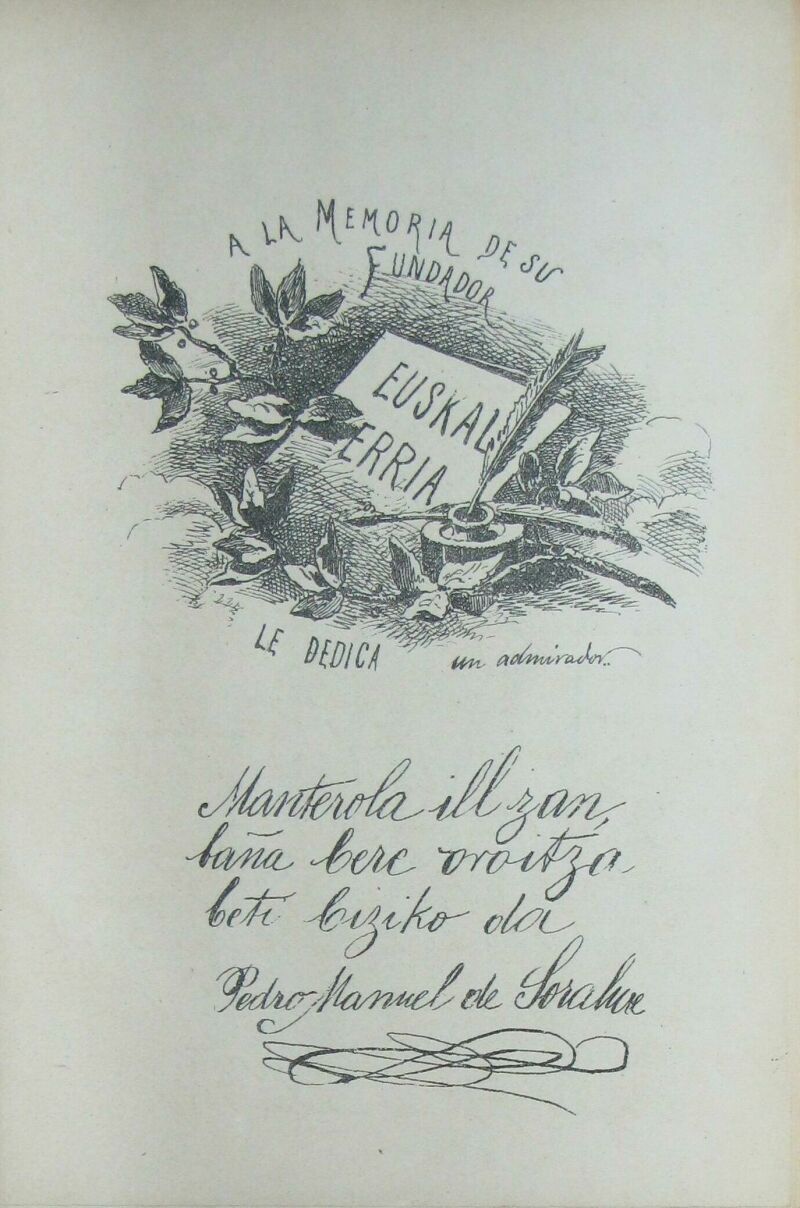 A LA MEMORIA DE SU
FUNDADOR
EUSKAL
ERRIA
LE DEDICA un admirador..
Manterola ill zan,
baña bere oroitza
beti biziko da
Pedro Manuel de Soraluce